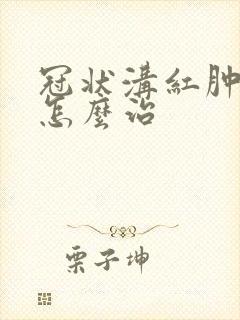 冠状溝紅肿
怎麼治
栗子坤